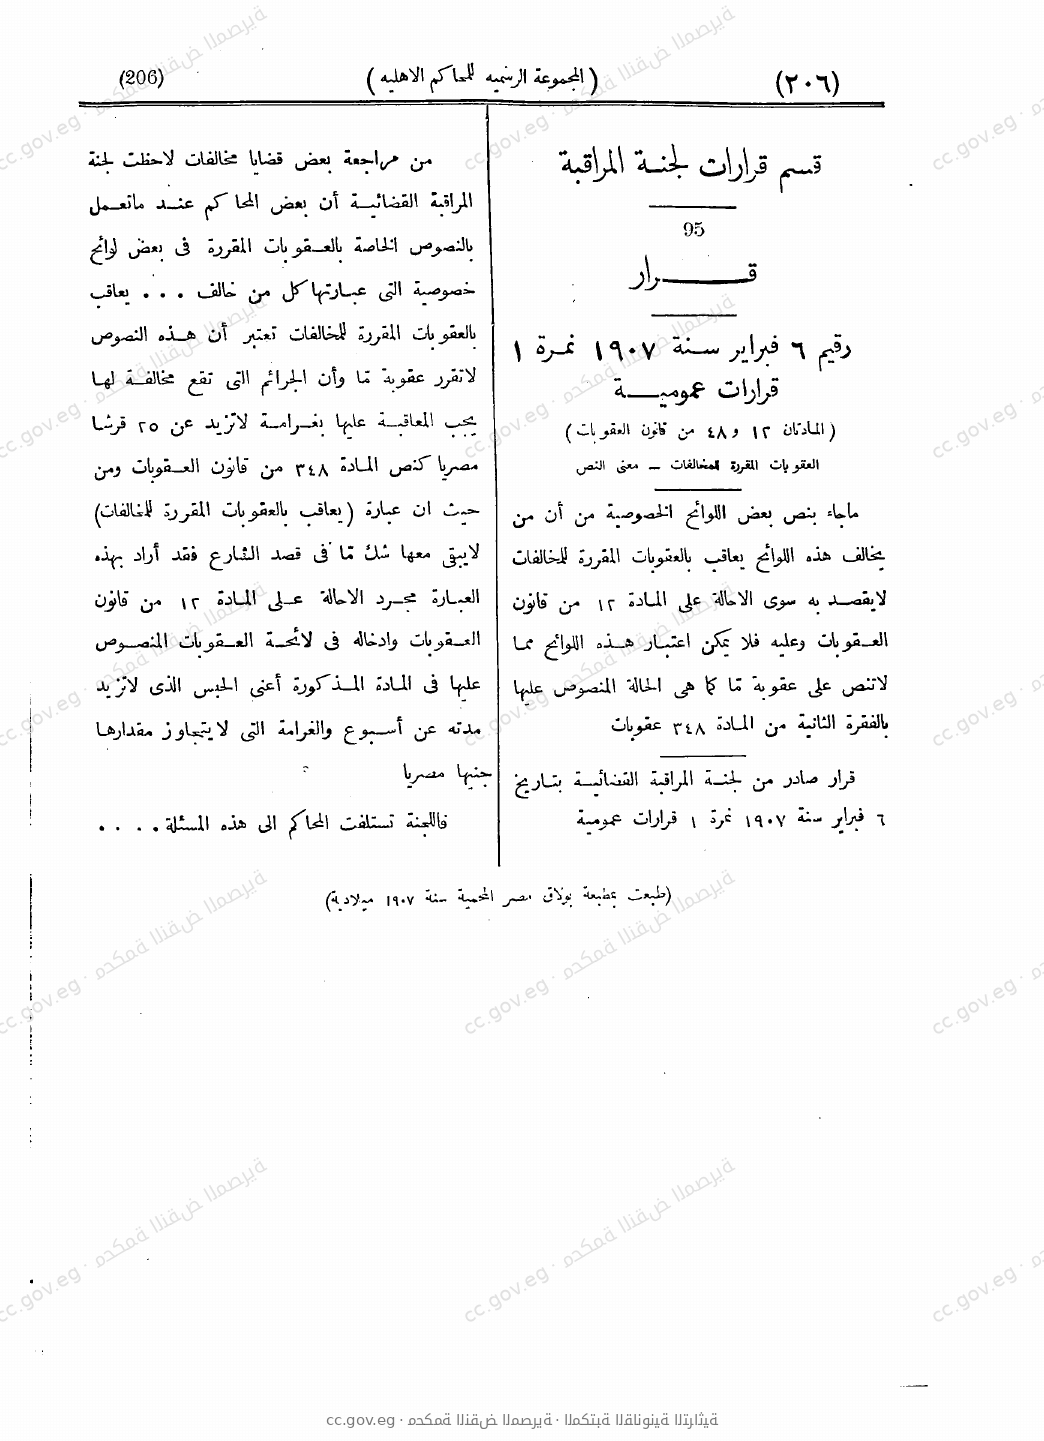 (٢٠٦)
(المجموعة الرسميه للمحاكم الاهليه)
(206)
قسم قرارات لجنة المراقبة
95
قرار
رقيم ٦ فبراير سنة ١٩٠٧ نمرة ١
قرارات عمومية
(المادتان ١٢ و٣٤٨ من قانون العقوبات)
العقوبات المقررة للمخالفات – معنى النص
ماجاء بنص بعض اللوائح الخصوصية من أن من
يخالف هذه اللوائح يعاقب بالعقوبات المقررة للمخالفات
لايقصد به سوى الاحالة على المادة ١٢ من قانون
العقوبات وعليه فلا يمكن اعتبار هذه اللوائح مما
لاتنص على عقوبة مّا كما هى الحالة المنصوص عليها
بالفقرة الثانية من المادة ٣٤٨ عقوبات
قرار صادر من لجنة المراقبة القضائية بتاريخ
٦ فبراير سنة ١٩٠٧ نمرة ١ قرارات عمومية
من مراجعة بعض قضايا مخالفات لاحظت لجنة
المراقبة القضائية أن بعض المحاكم عند ماتعمل
بالنصوص الخاصة بالعقوبات المقررة فى بعض لوائح
خصوصية التى عبارتها كل من خالف ... يعاقب
بالعقوبات المقررة للمخالفات تعتبر أن هذه النصوص
لاتقرر عقوبة مّا وأن الجرائم التى تقع مخالفة لها
يجب المعاقبة عليها بغرامة لاتزيد عن ٢٥ قرشا
مصريا كنص المادة ٣٤٨ من قانون العقوبات ومن
حيث ان عبارة (يعاقب بالعقوبات المقررة للمخالفات)
لايبقى معها شك مّا فى قصد الشارع فقد أراد بهذه
العبارة مجرد الاحالة على المادة ١٢ من قانون
العقوبات وادخاله فى لائحة العقوبات المنصوص
عليها فى المادة المذكورة أعنى الحبس الذى لاتزيد
مدته عن أسبوع والغرامة التى لايتجاوز مقدارها
جنيها مصريا
فاللجنة تستلفت المحاكم الى هذه المسئلة . . . .
(طبعت بمطبعة بولاق مصر المحمية سنة ١٩٠٧ ميلادية)
cc.gov.eg · محكمة النقض المصرية · المكتبة القانونية التراثية